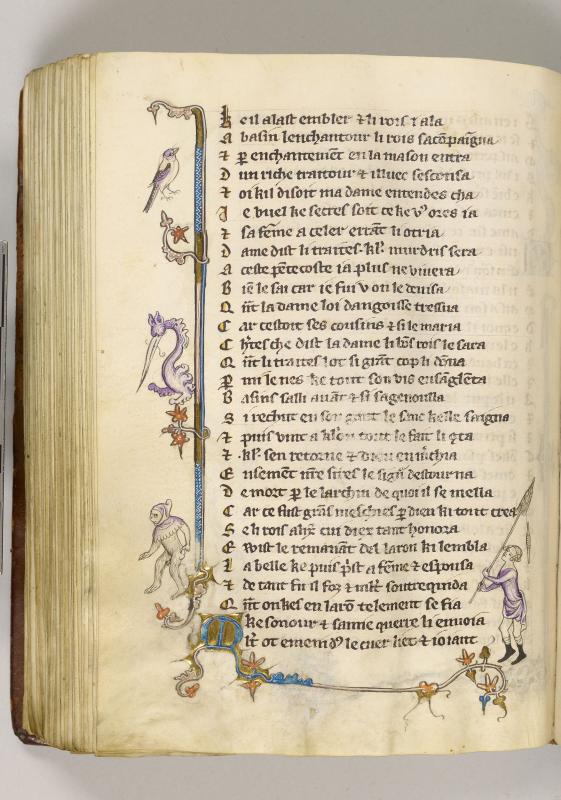 Ke il alast embler ⁊ li rois i ala
A basin lenchantour li rois sacōpaigna
⁊ ꝑ enchantement en la maison entra
D un riche traitour ⁊ illuec sesconsa
⁊ oi kil disoit ma dame entendes cha
J e vuel ke secres soit ce ke vꝰ ores ia
⁊ sa feme a celer errāt li otria
D ame dist li traites kl̄ murdris sera
A ceste pētecoste ia plus ne vivera
B ie le sai car ie fui v on le devisa
Q n̄t la dame loi dangoisse tressua
C ar cestoit ses cousins ⁊ si le maria
C h'tes che dist la dame li bōs rois le sara
Q n̄t li traites lot si grāt cop li dōna
P mi le nes ke tout son vis ensāglēta
B asins salli auāt ⁊ si sagenoulla
S i rechut en son gant le sanc kelle saigna
⁊ puis vint a kl'on tout le fait li cōta
⁊ kl' sen retorne ⁊ dieu en m'chia
E nsement
D e mort ꝑ le larchin de quoi il se mella
C ar ce fust grans meschies ꝑ dieu ki tout crea
S e li rois alix' cui diex tant honora
E wist le remanāt del laron ki lembla
L a belle ke puis p'st a feme ⁊ espousa
⁊ de tant fu il fox ⁊
Q n̄t onkes en larō telement se fia
ke sonour ⁊ samie querre li envoia
M ot le cuer liet ⁊ ioiant